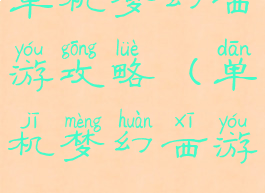 单机梦幻西
yóu gōng lüè dān
游攻略（单
jī mèng huàn xī yóu
机梦幻西游